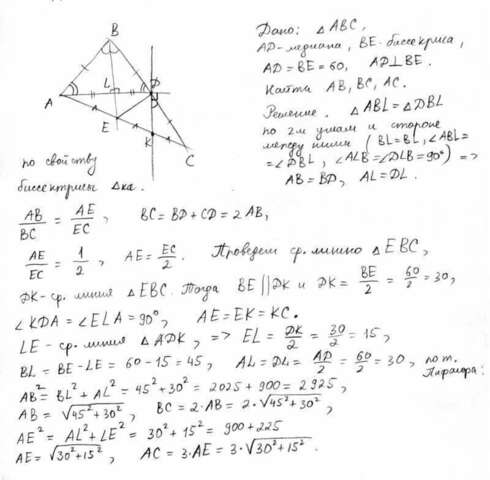 Дано: △ABC,
AD-медиана, BE-биссектриса,
AD=BE=60, AD⊥BE.
Найти AB, BC, AC.
Решение. △ABL=△DBL
по 2м углам и стороне
между ними (BL=BL, ∠ABL=
=∠DBL, ∠ALB=∠DLB=90°) =>
AB=BD, AL=DL.
B
L
D
A
E
K
C
по свойству
биссектрисы △ка.
AB/BC = AE/EC, BC=BD+CD=2AB,
AE/EC = 1/2, AE=EC/2. Проведем ср. линию △EBC,
DK-ср. линия △EBC. Тогда BE||DK и DK=BE/2=60/2=30,
∠KDA=∠ELA=90°, AE=EK=KC.
LE-ср. линия △ADK, => EL=DK/2=30/2=15,
BL=BE-LE=60-15=45, AL=DL=AD/2=60/2=30, по т.
Пифагора:
AB²=BL²+AL²=45²+30²=2025+900=2925,
AB=√45²+30², BC=2·AB=2·√45²+30²,
AE²=AL²+LE²=30²+15²=900+225
AE=√30²+15², AC=3·AE=3·√30²+15².